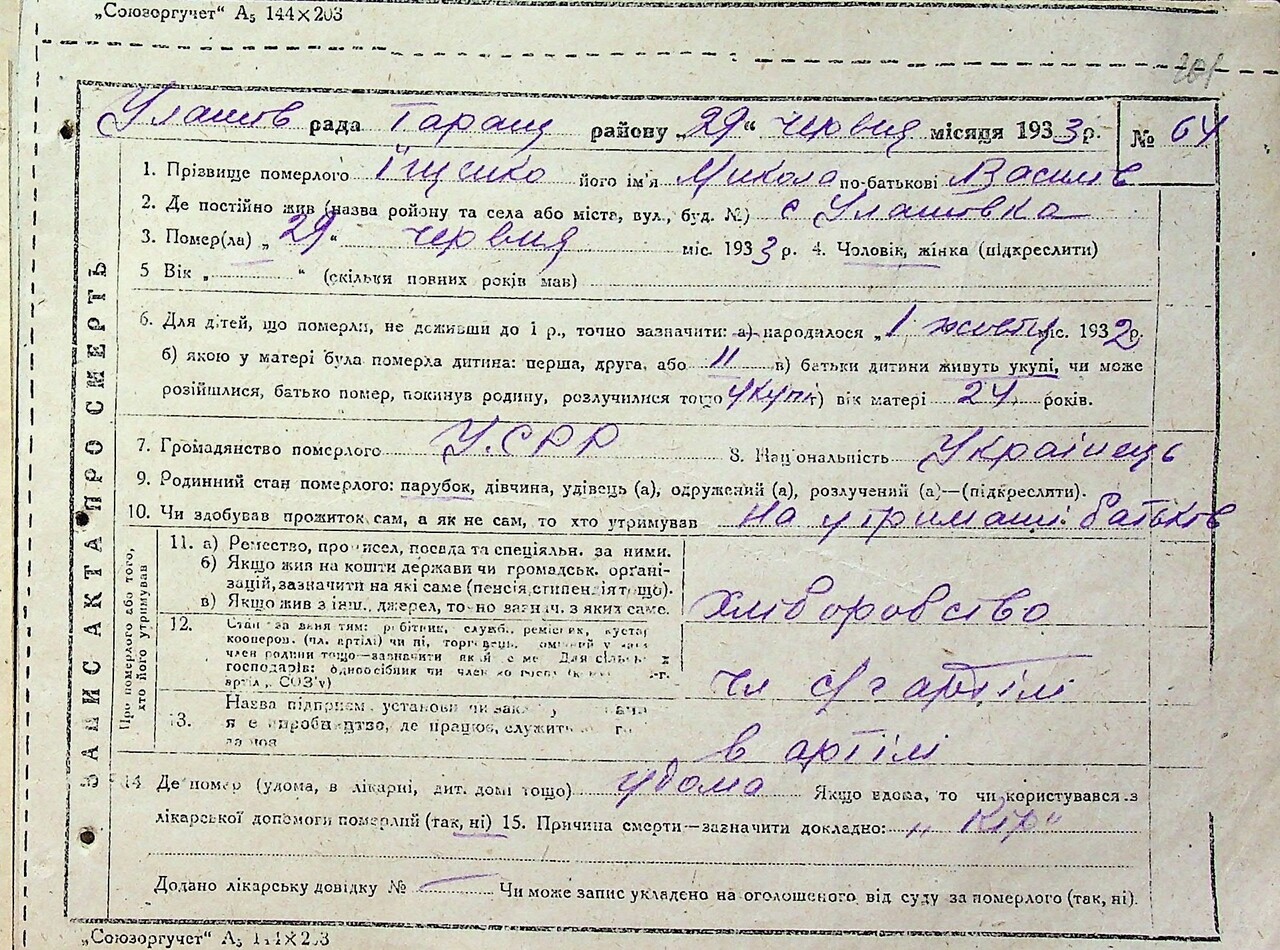 „Союзоргучет“ А5 144×203
201
Улашов рада Таращ району „29“ червня місяця 1933 р. № 64
ЗАПИС АКТА ПРО СМЕРТЬ
1. Прізвище померлого Іщенко його ім'я Микола по-батькові Васильов
2. Де постійно жив (назва ройону та села або міста, вул., буд. №) с Улашовка
3. Помер(ла) „29“ червня міс. 1933 р. 4. Чоловік, жінка (підкреслити)
5 Вік „ “ (скільки повних років мав)
6. Для дітей, що померли, не доживши до 1 р., точно зазначити: а) народилося „1 жовтн міс. 1932р.
б) якою у матері була померла дитина: перша, друга, або II в) батьки дитини живуть укупі, чи може
розійшлися, батько помер, покинув родину, розлучилися тощо укупі г) вік матері 24 років.
7. Громадянство померлого У.СРР 8. Національність Українець
9. Родинний стан померлого: парубок, дівчина, удівець (а), одружений (а), розлучений (а)—(підкреслити).
10. Чи здобував прожиток сам, а як не сам, то хто утримував на утримані батьков
Про померлого або того, хто його утримував
11. а) Ремество, промисел, посада та спеціяльн. за ними.
б) Якщо жив на кошти держави чи громадськ. орґані-
зацій, зазначити на які саме (пенсія, стипендія тощо).
в) Якщо жив з інш. джерел, точно зазнач. з яких саме.
хліборобство
12. Стан за заняттям: робітник, службз., ремісник, кустар
кооперов. (чл. артілі) чи ні, торговець,
член родини тощо—зазначити який саме Для сільськ
господарів: одноосібник чи член
артілі, СОЗ'у)
чл с/г артілі
13. Назва підприєм. установи чи
виробництво, де працює, служить
в артілі
14 Де помер (удома, в лікарні, дит. домі тощо) удома Якщо вдома, то чи користувався з
лікарської допомоги померлий (так, ні) 15. Причина смерти—зазначити докладно: „Кір“
Додано лікарську довідку № — Чи може запис укладено на оголошеного від суду за померлого (так, ні).
„Союзоргучет“ А5 144×203